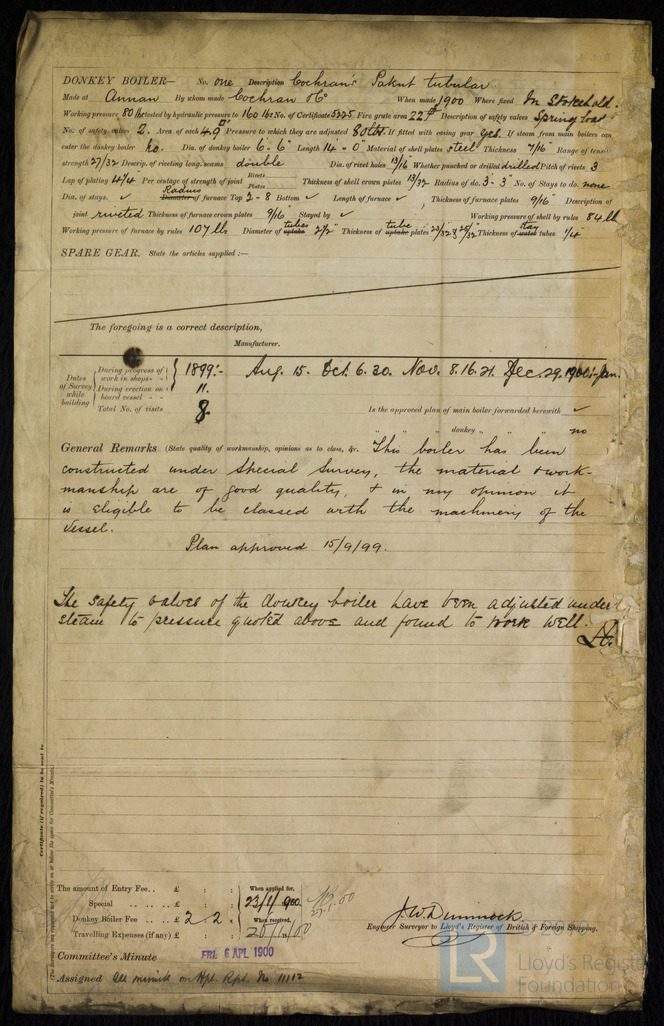 DONKEY BOILER— No. one Description Cochran's Patent tubular
Made at Annan By whom made Cochran & Co When made 1900 Where fixed In Stokehold.
Working pressure 80 lbs tested by hydraulic pressure to 160 lbs No. of Certificate 5225 Fire grate area 22 Description of safety valves Spring load
No. of safety valves 2. Area of each 4.9 Pressure to which they are adjusted 80 lbs If fitted with easing gear yes. If steam from main boilers can
enter the donkey boiler no. Dia. of donkey boiler 6-6" Length 14-0" Material of shell plates steel Thickness 7/16" Range of tensile
strength 27/32 Descrip. of riveting long. seams double Dia. of rivet holes 13/16 Whether punched or drilled drilled Pitch of rivets 3
Lap of plating 4 1/4 Per centage of strength of joint Rivets Plates Thickness of shell crown plates 13/32 Radius of do. 3-3" No. of Stays to do. none
Dia. of stays. ✓ Radius Diameter of furnace Top 2-8 Bottom ✓ Length of furnace ✓ Thickness of furnace plates 9/16" Description of
joint riveted Thickness of furnace crown plates 9/16 Stayed by ✓ Working pressure of shell by rules 84 lb
Working pressure of furnace by rules 107 lbs Diameter of tubes uptake 2 1/2" Thickness of tube uptake plates 23/32 & 25/32 Thickness of stay water tubes 1/4
SPARE GEAR. State the articles supplied:—
The foregoing is a correct description,
Manufacturer.
Dates of Survey while building
During progress of work in shops - - 1899:- Aug. 15. Oct. 6. 20. Nov. 8. 16. 21. Dec. 29. 1900:- Jan.
During erection on board vessel - - 11.
Total No. of visits 8.
Is the approved plan of main boiler forwarded herewith ✓
" " " donkey " " " no
General Remarks (State quality of workmanship, opinions as to class, &c. This boiler has been
constructed under Special Survey, the material & work-
manship are of good quality, & in my opinion it
is eligible to be classed with the machinery of the
vessel.
Plan approved 15/9/99.
The safety valves of the donkey boiler have been adjusted under
steam to pressure quoted above and found to work well.
Certificate (if required) to be sent to
(The Surveyors are requested not to write on or below the space for Committee's Minute.)
The amount of Entry Fee.. £ : : When applied for,
Special .. .. .. £ : : 23/1/900.
Donkey Boiler Fee .. £ 2 2 : When received,
Travelling Expenses (if any) £ : : 26/1/00
J.W. Dimmock
Engineer Surveyor to Lloyd's Register of British & Foreign Shipping.
Committee's Minute FRI. 6 APL 1900
Assigned See minute on Hpl. Rpt. No 11112
LR Lloyd's Register
Foundation